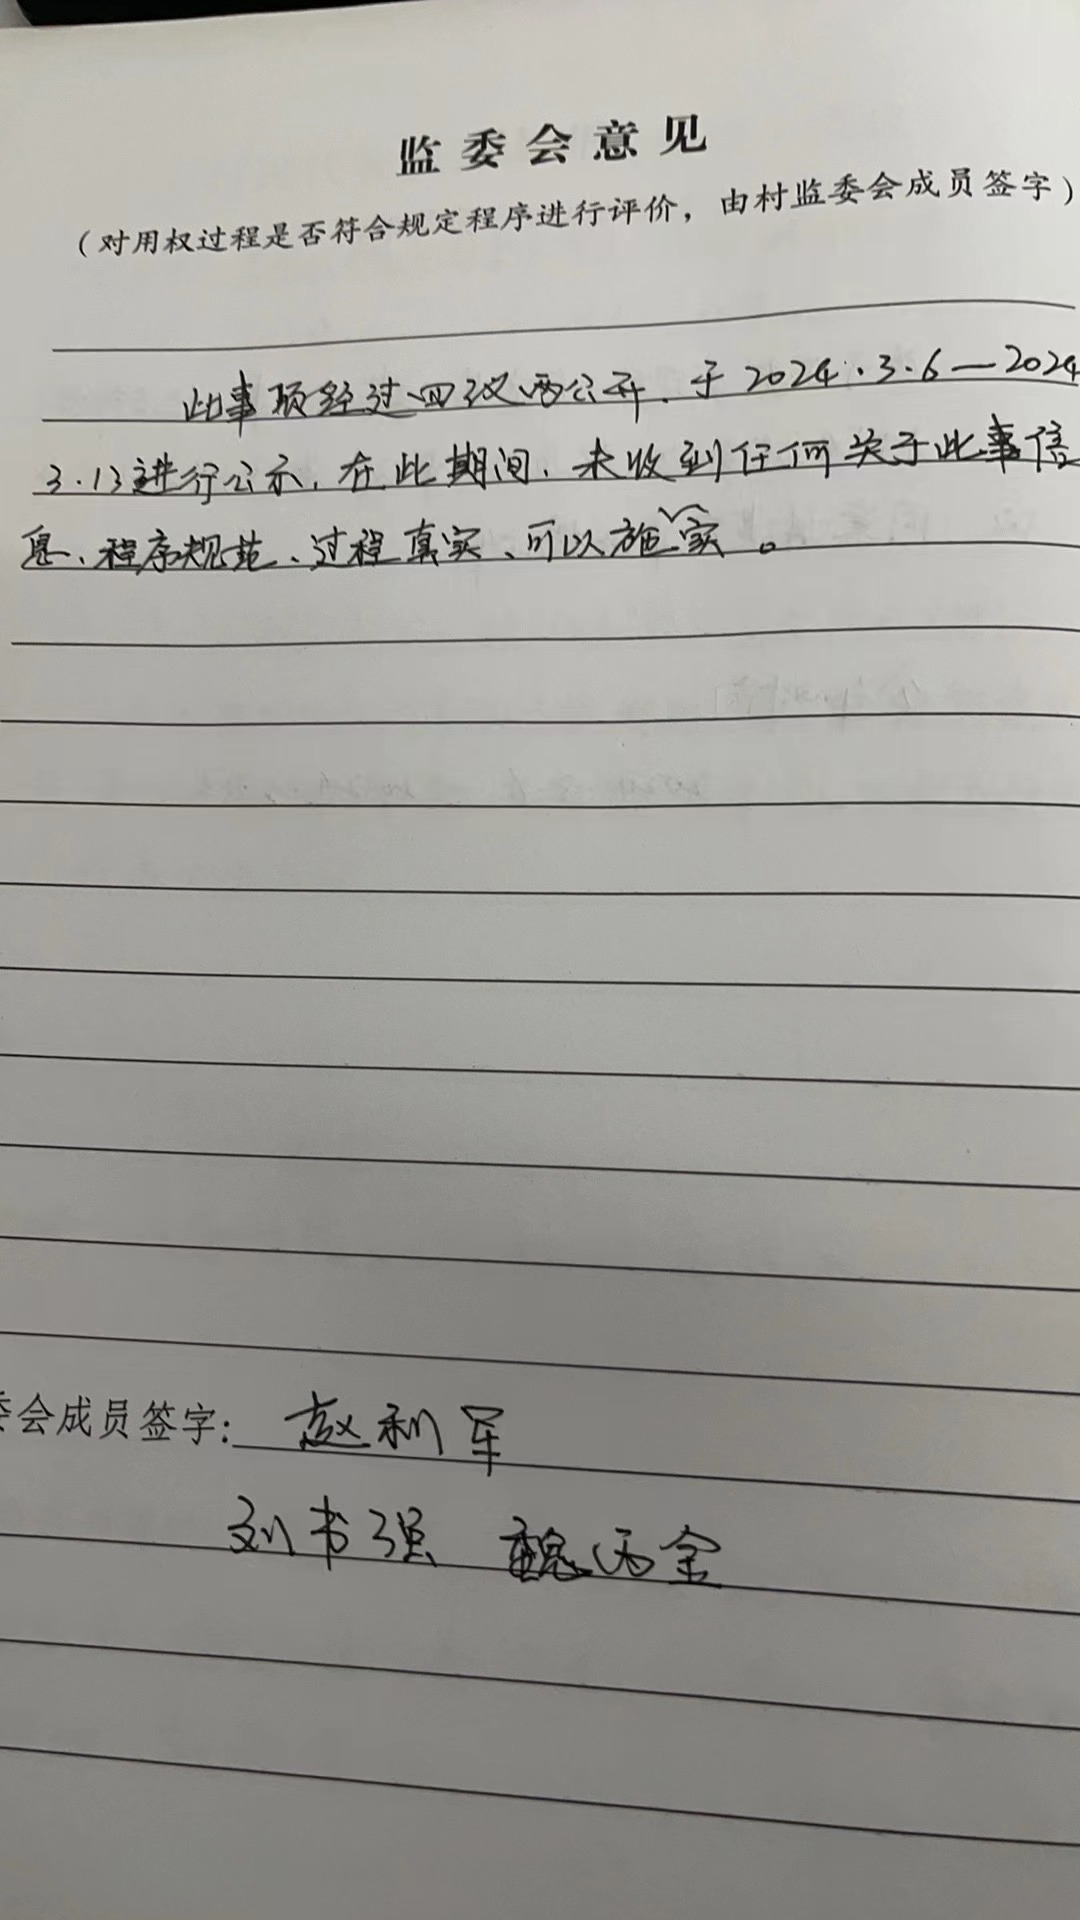 监委会意见
（对用权过程是否符合规定程序进行评价，由村监委会成员签字）
此事项经过四议两公开，于2024.3.6—2024
3.13进行公示，在此期间，未收到任何关于此事信
息、程序规范、过程真实、可以施实。
委会成员签字：赵利军
刘书强 魏丙金